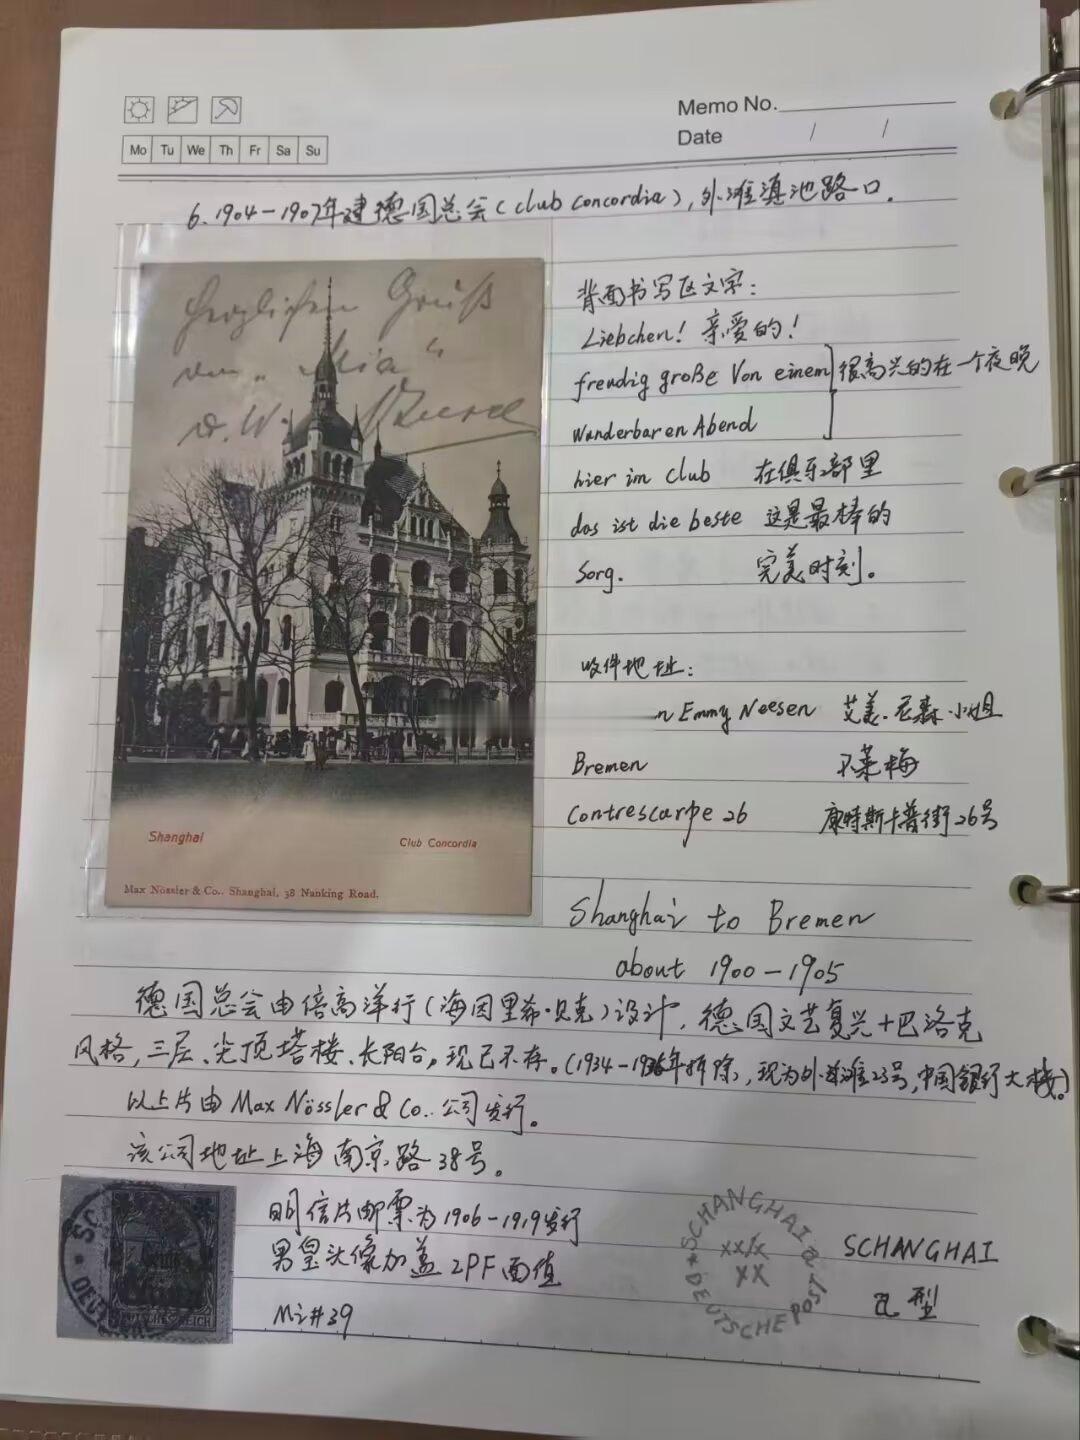 Memo No.
Date / /
Mo Tu We Th Fr Sa Su
6. 1904-1907年建德国总会(club concordia),外滩滇池路口.
Herzlichen Gruß
von „Mia“
u. W.
Shanghai
Club Concordia
Max Nössler & Co., Shanghai, 38 Nanking Road.
背面书写区文字:
Liebchen! 亲爱的!
freudig große Von einem 很高兴的在一个夜晚
Wanderbaren Abend
hier im Club 在俱乐部里
das ist die beste 这是最棒的
Sorg. 完美时刻。
收件地址:
n Emmy Neesen 艾美.尼森.小姐
Bremen 不莱梅
Contrescarpe 26 康特斯卡普街26号
Shanghai to Bremen
about 1900-1905
德国总会由倍高洋行(海因里希·贝克)设计,德国文艺复兴+巴洛克
风格,三层、尖顶塔楼、长阳台。现已不存。(1934-年拆除,现为外滩23号,中国银行大楼。)
以上片由Max Nössler & Co..公司发行。
该公司地址上海南京路38号。
明信片邮票为1906-1919发行
男皇头像加盖2PF面值
Mi#39
DEUTSCHES REICH
SCHANGHAI a
xx/x
xx
*DEUTSCHE POST
SCHANGHAI
a型